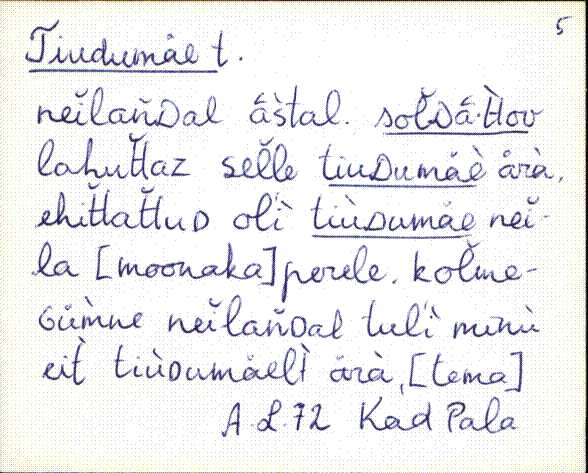 5
Tiudumåe t.
neĭlan̆ᴅal å̄s̀tal. sol̆ᴅå̄·t̆tov
lahut̆taz sel̆le tiuᴅumåè årà,
ehit̆tat̆tuᴅ olʹì tiùᴅumåe neĭ-
la [moonaka] perele. kol̆me-
ɢüm̀ne neĭlan̆ᴅal tulʹì minù
eit̀ tiùᴅumåelt̀ årà, [tema]
A.L.72 Kad Pala